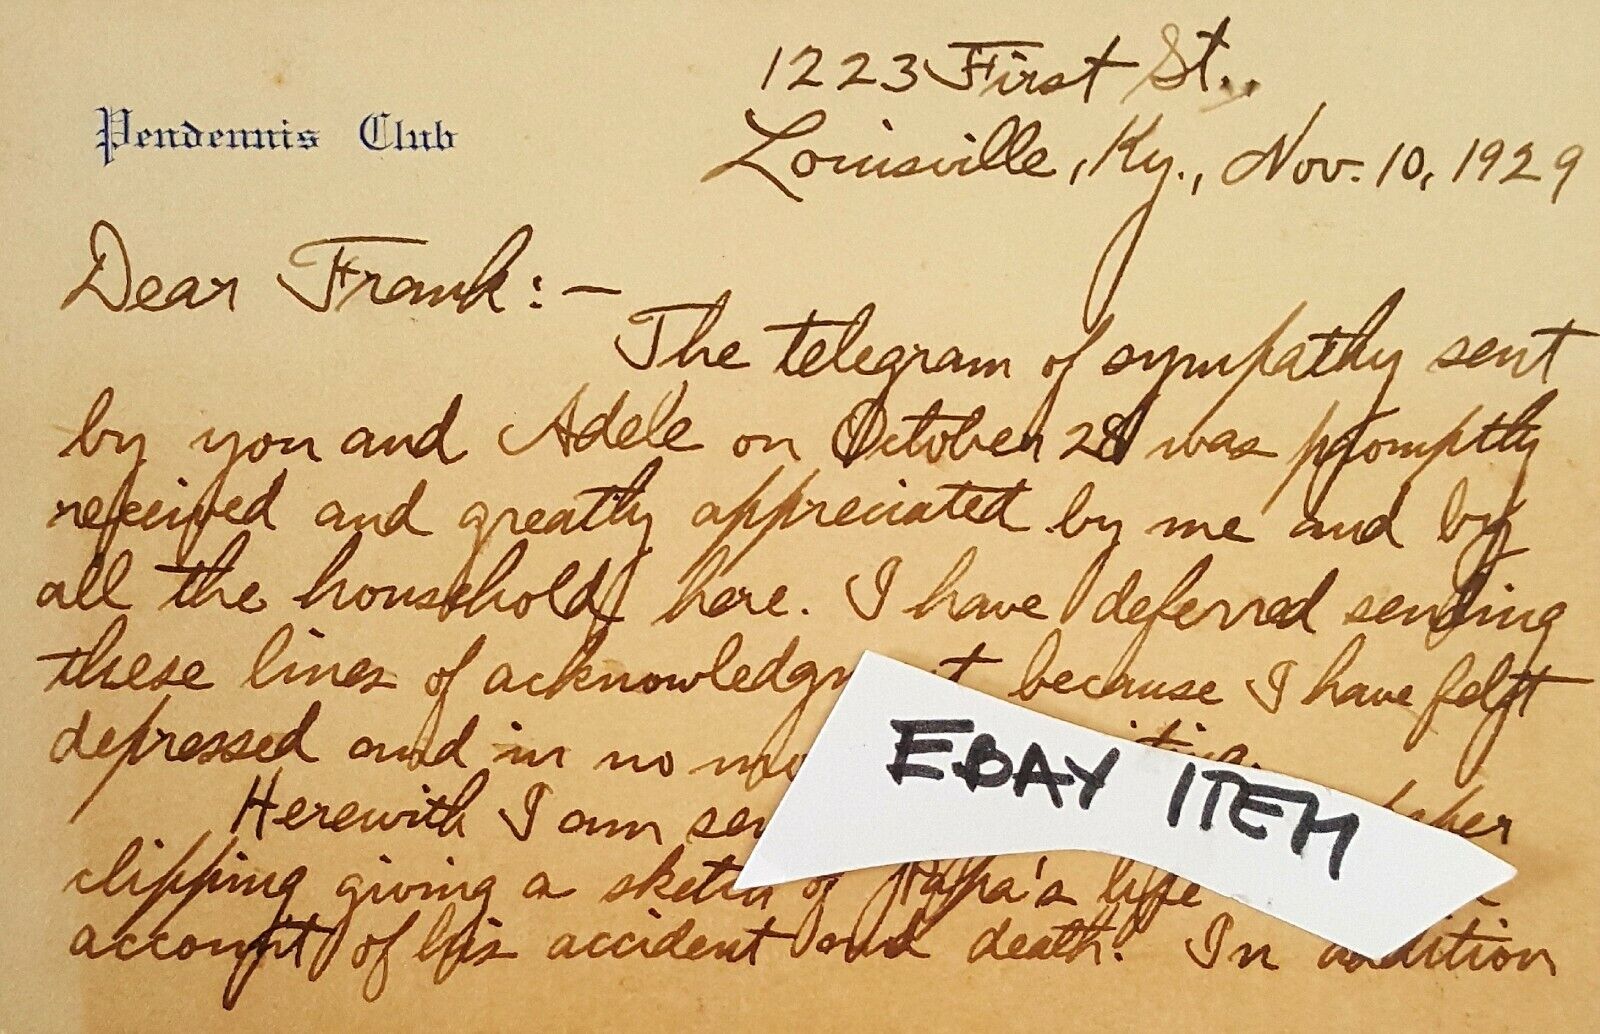 1223 First St.,
Pendennis Club
Louisville, Ky., Nov. 10, 1929
Dear Frank:—
The telegram of sympathy sent
by you and Adele on October 28 was promptly
received and greatly appreciated by me and by
all the household here. I have deferred sending
these lines of because I have felt
depressed and in no
EBAY ITEM
Herewith I am
clipping giving a sketch of Papa's life
account of his accident and death. In addition